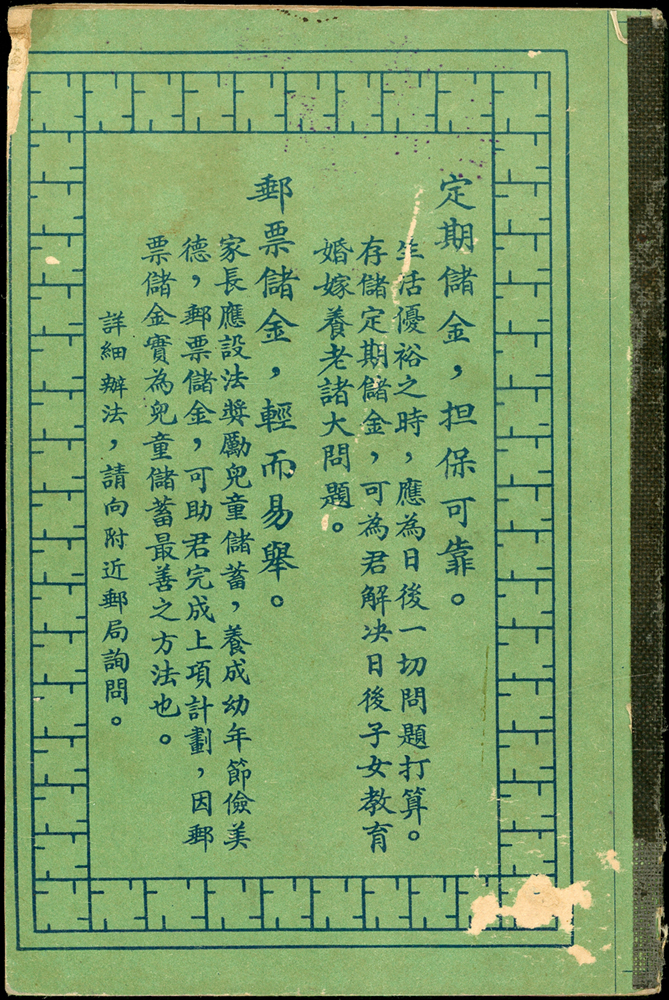 定期儲金，担保可靠。
生活優裕之時，應為日後一切問題打算。
存儲定期儲金，可為君解决日後子女教育
婚嫁養老諸大問題。
郵票儲金，輕而易舉。
家長應設法獎勵兒童儲蓄，養成幼年節儉美
德，郵票儲金，可助君完成上項計劃，因郵
票儲金實為兒童儲蓄最善之方法也。
詳細辦法，請向附近郵局詢問。